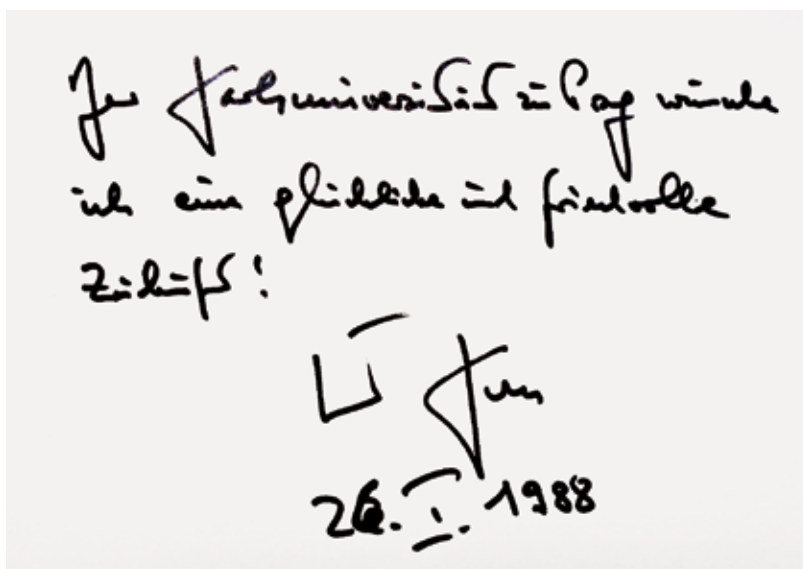 Der Karlsuniversität zu Prag wünsche
ich eine glückliche und friedvolle
Zukunft!
26. I. 1988